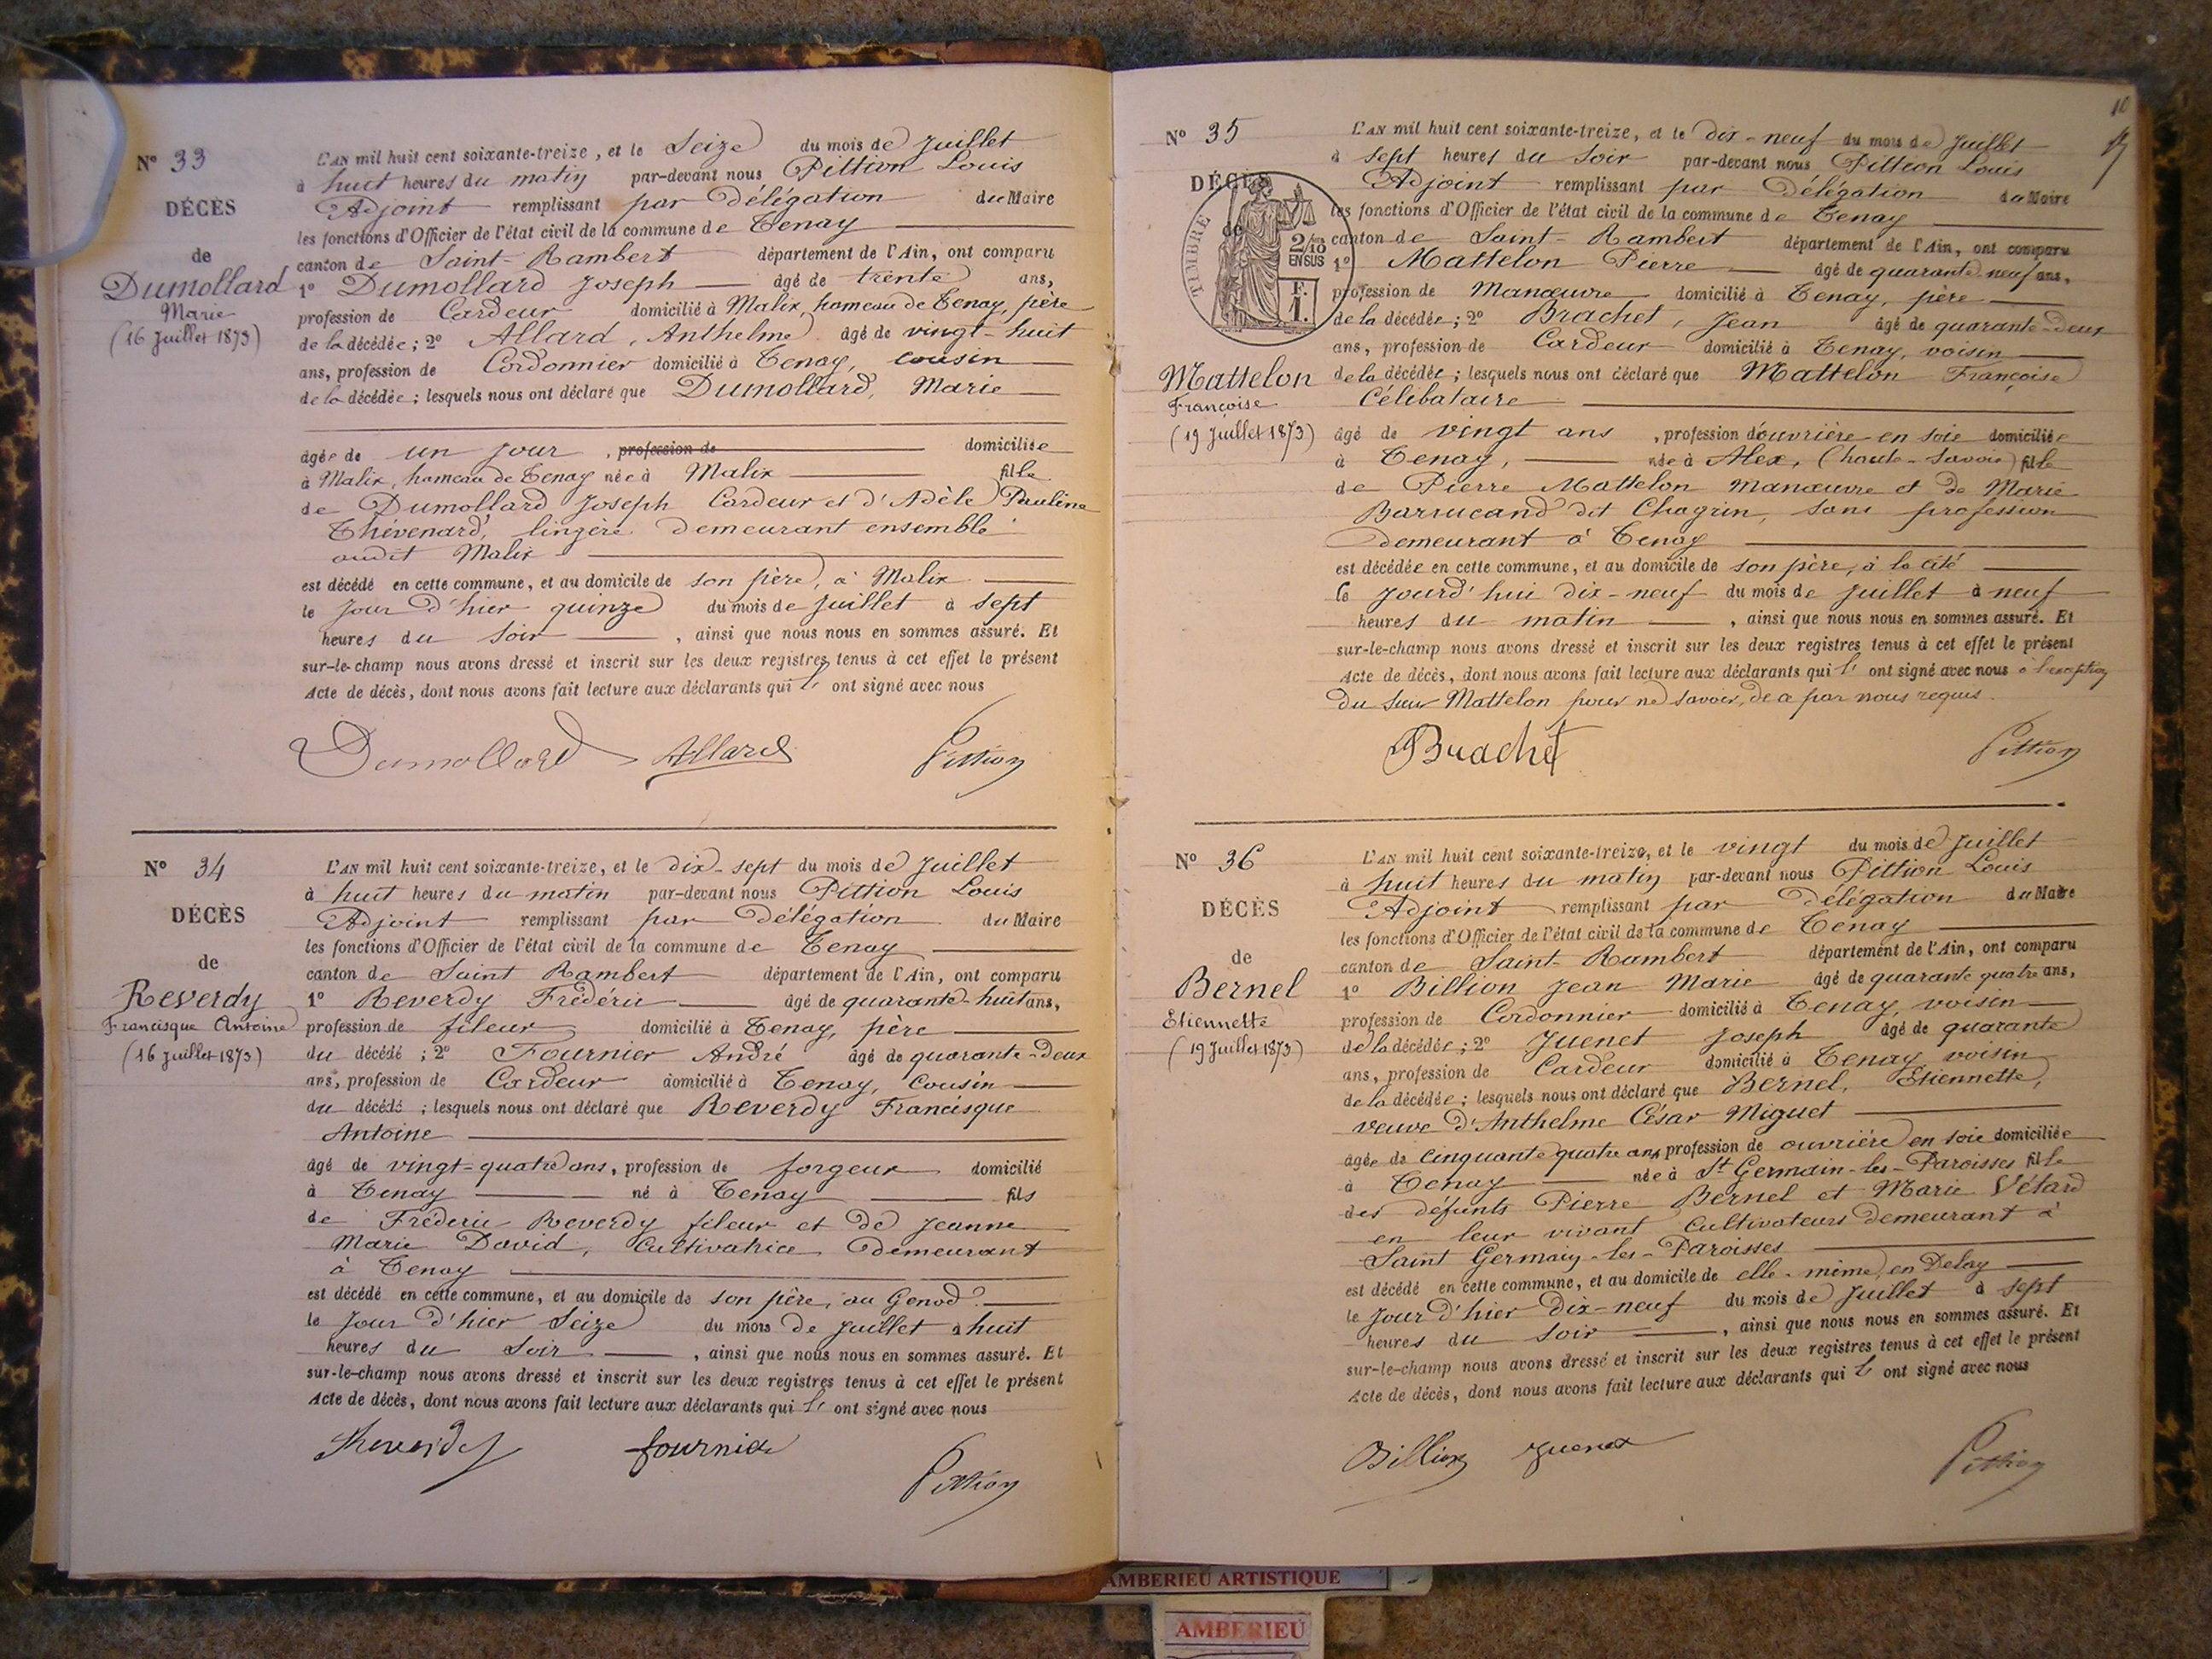 N° 33
DÉCÈS
de
Dumollard
Marie
(16 Juillet 1873)
L'AN mil huit cent soixante-treize, et le Seize du mois de Juillet
à huit heures du matin par-devant nous Pittion Louis
Adjoint remplissant par Délégation du Maire
les fonctions d'Officier de l'état civil de la commune de Tenay
canton de Saint-Rambert département de l'Ain, ont comparu
1° Dumollard Joseph âgé de trente ans,
profession de Cardeur domicilié à Malix, hameau de Tenay, père
de la décédée; 2° Allard, Anthelme âgé de vingt-huit
ans, profession de Cordonnier domicilié à Tenay, cousin
de la décédée; lesquels nous ont déclaré que Dumollard, Marie
âgée de un jour, profession de domiciliée
à Malix, hameau de Tenay née à Malix fille
de Dumollard Joseph Cardeur et d'Adèle Pauline
Thévenard, lingère demeurant ensemble
audit Malix
est décédé en cette commune, et au domicile de son père, à Malix
le jour d'hier quinze du mois de Juillet à sept
heures du soir, ainsi que nous nous en sommes assuré. Et
sur-le-champ nous avons dressé et inscrit sur les deux registres tenus à cet effet le présent
Acte de décès, dont nous avons fait lecture aux déclarants qui l' ont signé avec nous
Dumollard Allard Pittion
N° 34
DÉCÈS
de
Reverdy
Francisque Antoine
(16 Juillet 1873)
L'AN mil huit cent soixante-treize, et le dix-sept du mois de Juillet
à huit heures du matin par-devant nous Pittion Louis
Adjoint remplissant par Délégation du Maire
les fonctions d'Officier de l'état civil de la commune de Tenay
canton de Saint Rambert département de l'Ain, ont comparu
1° Reverdy Frédéric âgé de quarante-huit ans,
profession de fileur domicilié à Tenay, père
du décédé; 2° Fournier André âgé de quarante-deux
ans, profession de Cardeur domicilié à Tenay, Cousin
du décédé; lesquels nous ont déclaré que Reverdy Francisque
Antoine
âgé de vingt-quatre ans, profession de forgeur domicilié
à Tenay né à Tenay fils
de Fréderic Reverdy fileur et de Jeanne
Marie David, Cultivatrice demeurant
à Tenay
est décédé en cette commune, et au domicile de son père, au Genod
le Jour d'hier Seize du mois de Juillet à huit
heures du Soir, ainsi que nous nous en sommes assuré. Et
sur-le-champ nous avons dressé et inscrit sur les deux registres tenus à cet effet le présent
Acte de décès, dont nous avons fait lecture aux déclarants qui l' ont signé avec nous
Reverdy fournier Pittion
10
N° 35
DÉCÈS
de
TIMBRE
2/10 EN SUS
F. 1.
Mattelon
Françoise
(19 Juillet 1873)
L'AN mil huit cent soixante-treize, et le dix-neuf du mois de Juillet
à sept heures du soir par-devant nous Pittion Louis
Adjoint remplissant par Délégation du Maire
les fonctions d'Officier de l'état civil de la commune de Tenay
canton de Saint-Rambert département de l'Ain, ont comparu
1° Mattelon Pierre âgé de quarante neuf ans,
profession de Manœuvre domicilié à Tenay, père
de la décédée; 2° Brachet, Jean âgé de quarante-deux
ans, profession de Cardeur domicilié à Tenay, voisin
de la décédée; lesquels nous ont déclaré que Mattelon Françoise
Célibataire
âgé de vingt ans, profession d'ouvrière en soie domiciliée
à Tenay, née à Alex, (haute-Savoie) fille
de Pierre Mattelon manœuvre et de Marie
Barrucand dit Chagrin, sans profession
demeurant à Tenay
est décédée en cette commune, et au domicile de son père, à la cité
le jourd'hui dix-neuf du mois de Juillet à neuf
heures du matin, ainsi que nous nous en sommes assuré. Et
sur-le-champ nous avons dressé et inscrit sur les deux registres tenus à cet effet le présent
Acte de décès, dont nous avons fait lecture aux déclarants qui l' ont signé avec nous à l'exception
du sieur Mattelon pour ne savoir, de ce par nous requis.
Brachet Pittion
N° 36
DÉCÈS
de
Bernel
Etiennette
(19 Juillet 1873)
L'AN mil huit cent soixante-treize, et le vingt du mois de Juillet
à huit heures du matin par-devant nous Pittion Louis
Adjoint remplissant par Délégation du Maire
les fonctions d'Officier de l'état civil de la commune de Tenay
canton de Saint-Rambert département de l'Ain, ont comparu
1° Billion Jean Marie âgé de quarante quatre ans,
profession de Cordonnier domicilié à Tenay, voisin
de la décédée; 2° Juenet Joseph âgé de quarante
ans, profession de Cardeur domicilié à Tenay voisin
de la décédée; lesquels nous ont déclaré que Bernel, Etiennette,
veuve d'Anthelme César Miguet
âgée de cinquante quatre ans profession de ouvrière en soie domiciliée
à Tenay née à St Germain-les-Paroisses fille
des défunts Pierre Bernel et Marie Vétard
en leur vivant Cultivateurs demeurant à
Saint Germain-les-Paroisses
est décédé en cette commune, et au domicile de elle-même, en Delay
le Jour d'hier Dix-neuf du mois de Juillet à sept
heures du soir, ainsi que nous nous en sommes assuré. Et
sur-le-champ nous avons dressé et inscrit sur les deux registres tenus à cet effet le présent
Acte de décès, dont nous avons fait lecture aux déclarants qui l' ont signé avec nous
Billion Juenet Pittion
AMBERIEU ARTISTIQUE
AMBERIEU